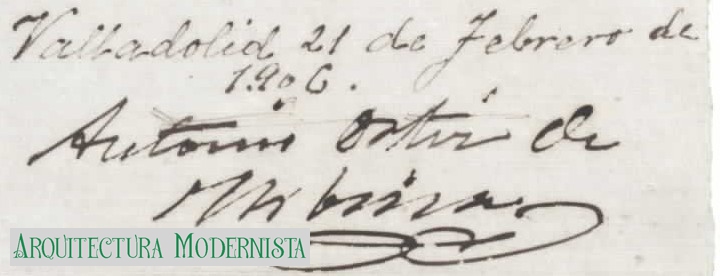 Valladolid 21 de Febrero de
1.906.
Antonio Ortiz de
Urbina
ARQUITECTURA MODERNISTA